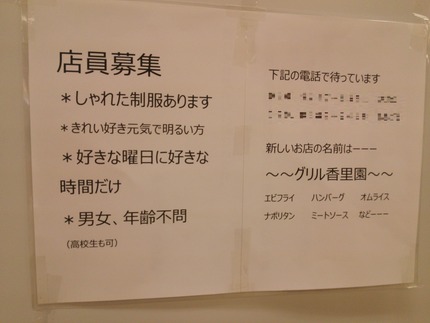 店員募集
＊しゃれた制服あります
＊きれい好き元気で明るい方
＊好きな曜日に好きな
時間だけ
＊男女、年齢不問
（高校生も可）
下記の電話で待っています
新しいお店の名前はーーー
～～グリル香里園～～
エビフライ ハンバーグ オムライス
ナポリタン ミートソース などーーー